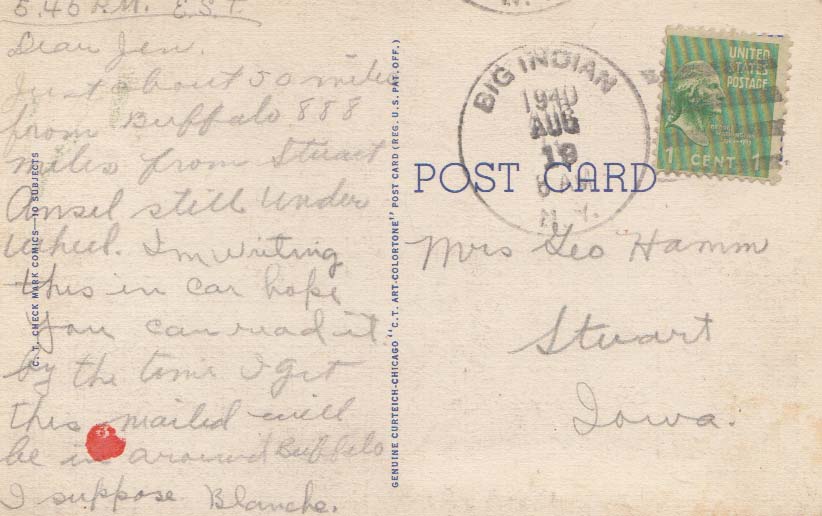 5.45 P.M. E.S.T.
Dear Jen.
Just about 50 miles
from Buffalo 888
miles from Stuart
Ansel still Under
Wheel. I'm writing
this in car hope
you can read it
by the time I get
this mailed will
be in around Buffalo
I suppose. Blanche.
C. T. CHECK MARK COMICS—10 SUBJECTS
GENUINE CURTEICH-CHICAGO "C. T. ART-COLORTONE" POST CARD (REG. U. S. PAT. OFF.)
POST CARD
BIG INDIAN
1940
AUG
19
8 AM
N.Y.
UNITED
STATES
POSTAGE
1 CENT 1
Mrs Geo Hamm
Stuart
Iowa.